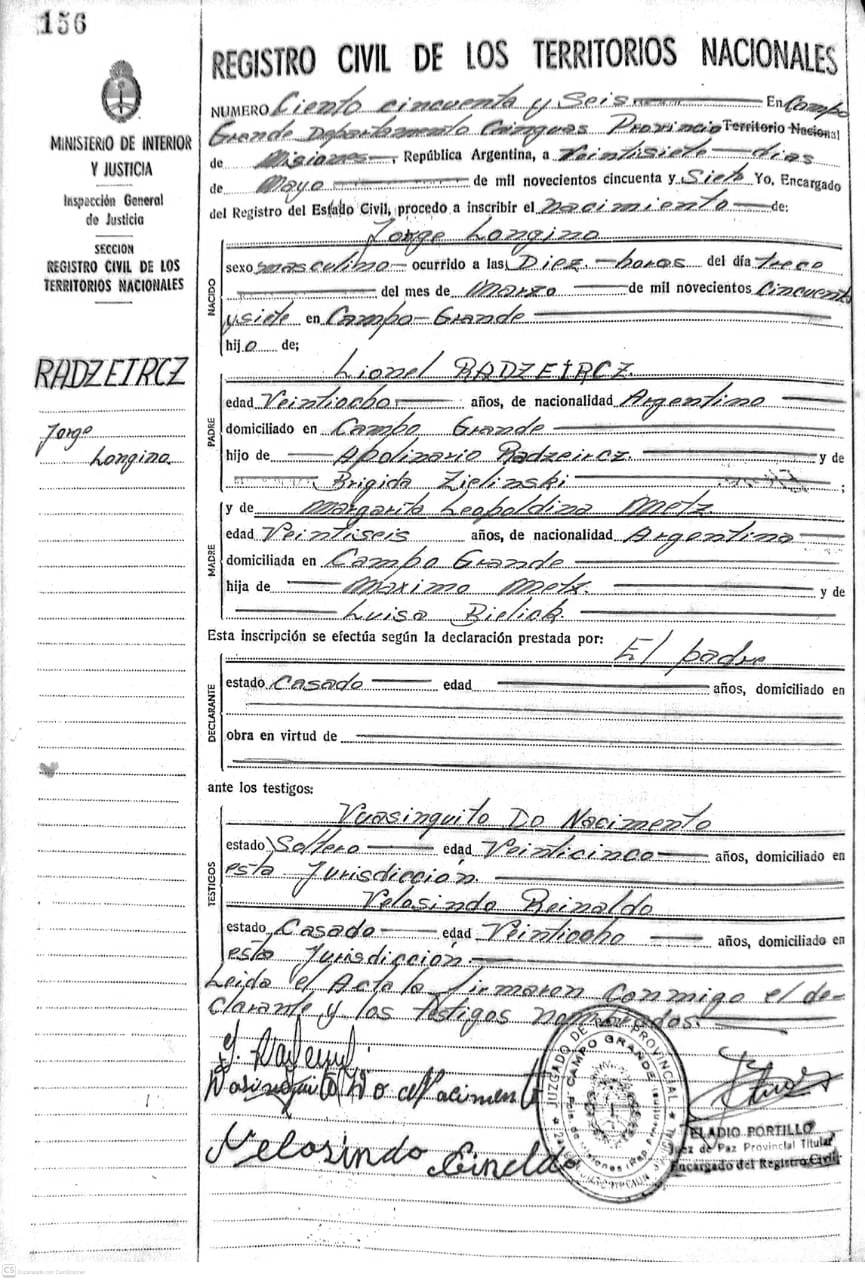 156
MINISTERIO DE INTERIOR
Y JUSTICIA
Inspección General
de Justicia
SECCION
REGISTRO CIVIL DE LOS
TERRITORIOS NACIONALES
RADZEIRCZ
Jorge
Longino.
REGISTRO CIVIL DE LOS TERRITORIOS NACIONALES
NUMERO Ciento cincuenta y Seis En Campo
Grande Departamento Cainguas Provincia Territorio Nacional
de Misiones, República Argentina, a Veintisiete dias
de Mayo de mil novecientos cincuenta y Siete Yo, Encargado
del Registro del Estado Civil, procedo a inscribir el nacimiento de:
NACIDO
Jorge Longino
sexo masculino ocurrido a las Diez horas del día trece
del mes de Marzo de mil novecientos Cincuenta
y siete en Campo Grande
hijo de;
PADRE
Lionel RADZEIRCZ.
edad Veintiocho años, de nacionalidad Argentino
domiciliado en Campo Grande
hijo de Apolinario Radzeircz. y de
Brigida Zielinski ;
MADRE
y de Margarita Leopoldina Metz.
edad Veintiseis años, de nacionalidad Argentina
domiciliada en Campo Grande
hija de Maximo Metz. y de
Luisa Bielick.
Esta inscripción se efectúa según la declaración prestada por: El padre
DECLARANTE
estado Casado edad años, domiciliado en
obra en virtud de
ante los testigos:
TESTIGOS
Vuasinquito Do Nacimento
estado Soltero edad Veinticinco años, domiciliado en
esta Jurisdicción.
Velosindo Reinaldo
estado Casado edad Veintiocho años, domiciliado en
esta Jurisdicción.
Leida el Acta la firmaron conmigo el de-
clarante y los testigos nombrados.
Do Naciment
Velosindo
JUZGADO DE PAZ PROVINCIAL
CAMPO GRANDE
ELADIO PORTILLO
Juez de Paz Provincial Titular
Encargado del Registro Civil
CS Escaneado con CamScanner